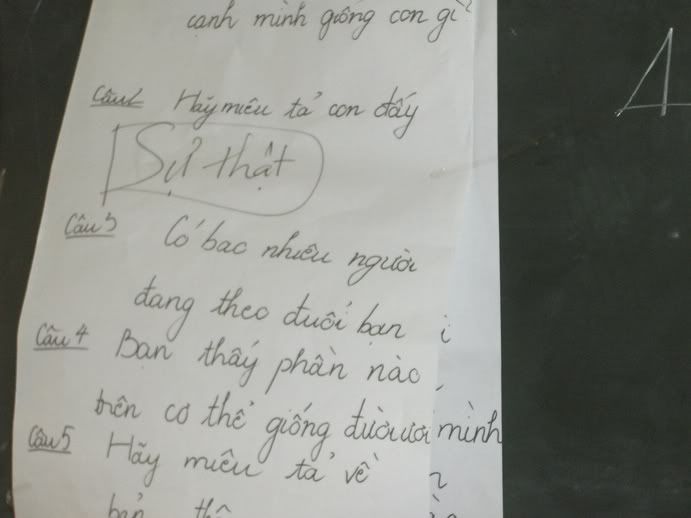 cạnh mình giống con gì?
Câu 2 Hãy miêu tả con đấy
Sự thật
Câu 3 Có bao nhiêu người
đang theo đuổi bạn
Câu 4 Bạn thấy phần nào
trên cơ thể giống đười ươi mình
Câu 5 Hãy miêu tả về
bản thân